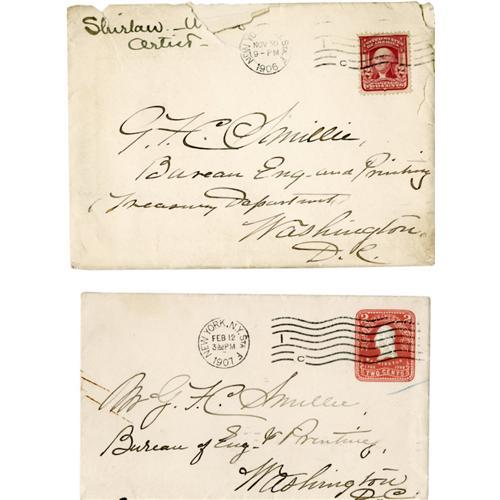 Shirlaw
Artist
NEW YORK
Sta. F
NOV 30
9-PM
1906
1
C
G. F. C. Smillie,
Bureau Eng. and Printing
Treasury Department
Washington,
D.C.
NEW YORK, N.Y. Sta. F
FEB 12
PM
1907
1
C
2 2
TWO CENTS
Mr G. F. C. Smillie,
Bureau of Eng. & Printing,
Washington
D.C.